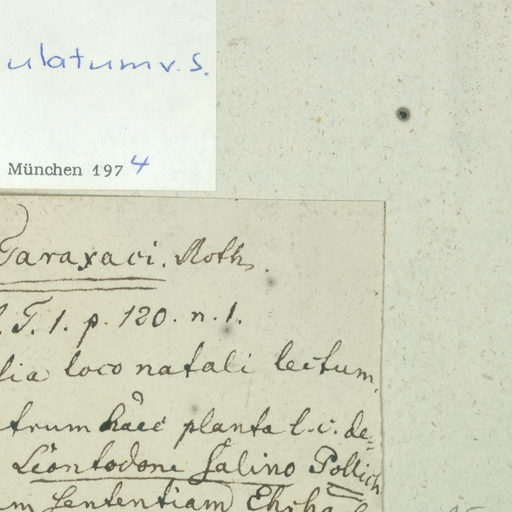 ulatum v. S.
München 1974
Taraxaci. Roth.
T. 1. p. 120. n. 1.
lia loco natali lectum.
trum haec planta l. c. de=
Leontodone Salino Pollich
em sententiam Ehrh